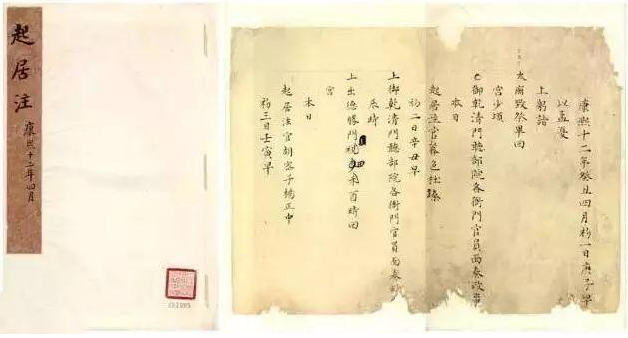 起居注
康熙十二年四月
康熙十二年癸丑四月初一日庚子早
以孟夏
上躬詣
太廟致祭畢回
宮少頃
上御乾清門聽部院各衙門官員面奏政事
本日
起居注官色杜臻
初二日辛丑早
上御乾清門聽部院各衙門官員面奏政
辰時
上出德勝門禾酉時回
宮
本日
起居注官胡密子楊正中
初三日壬寅早